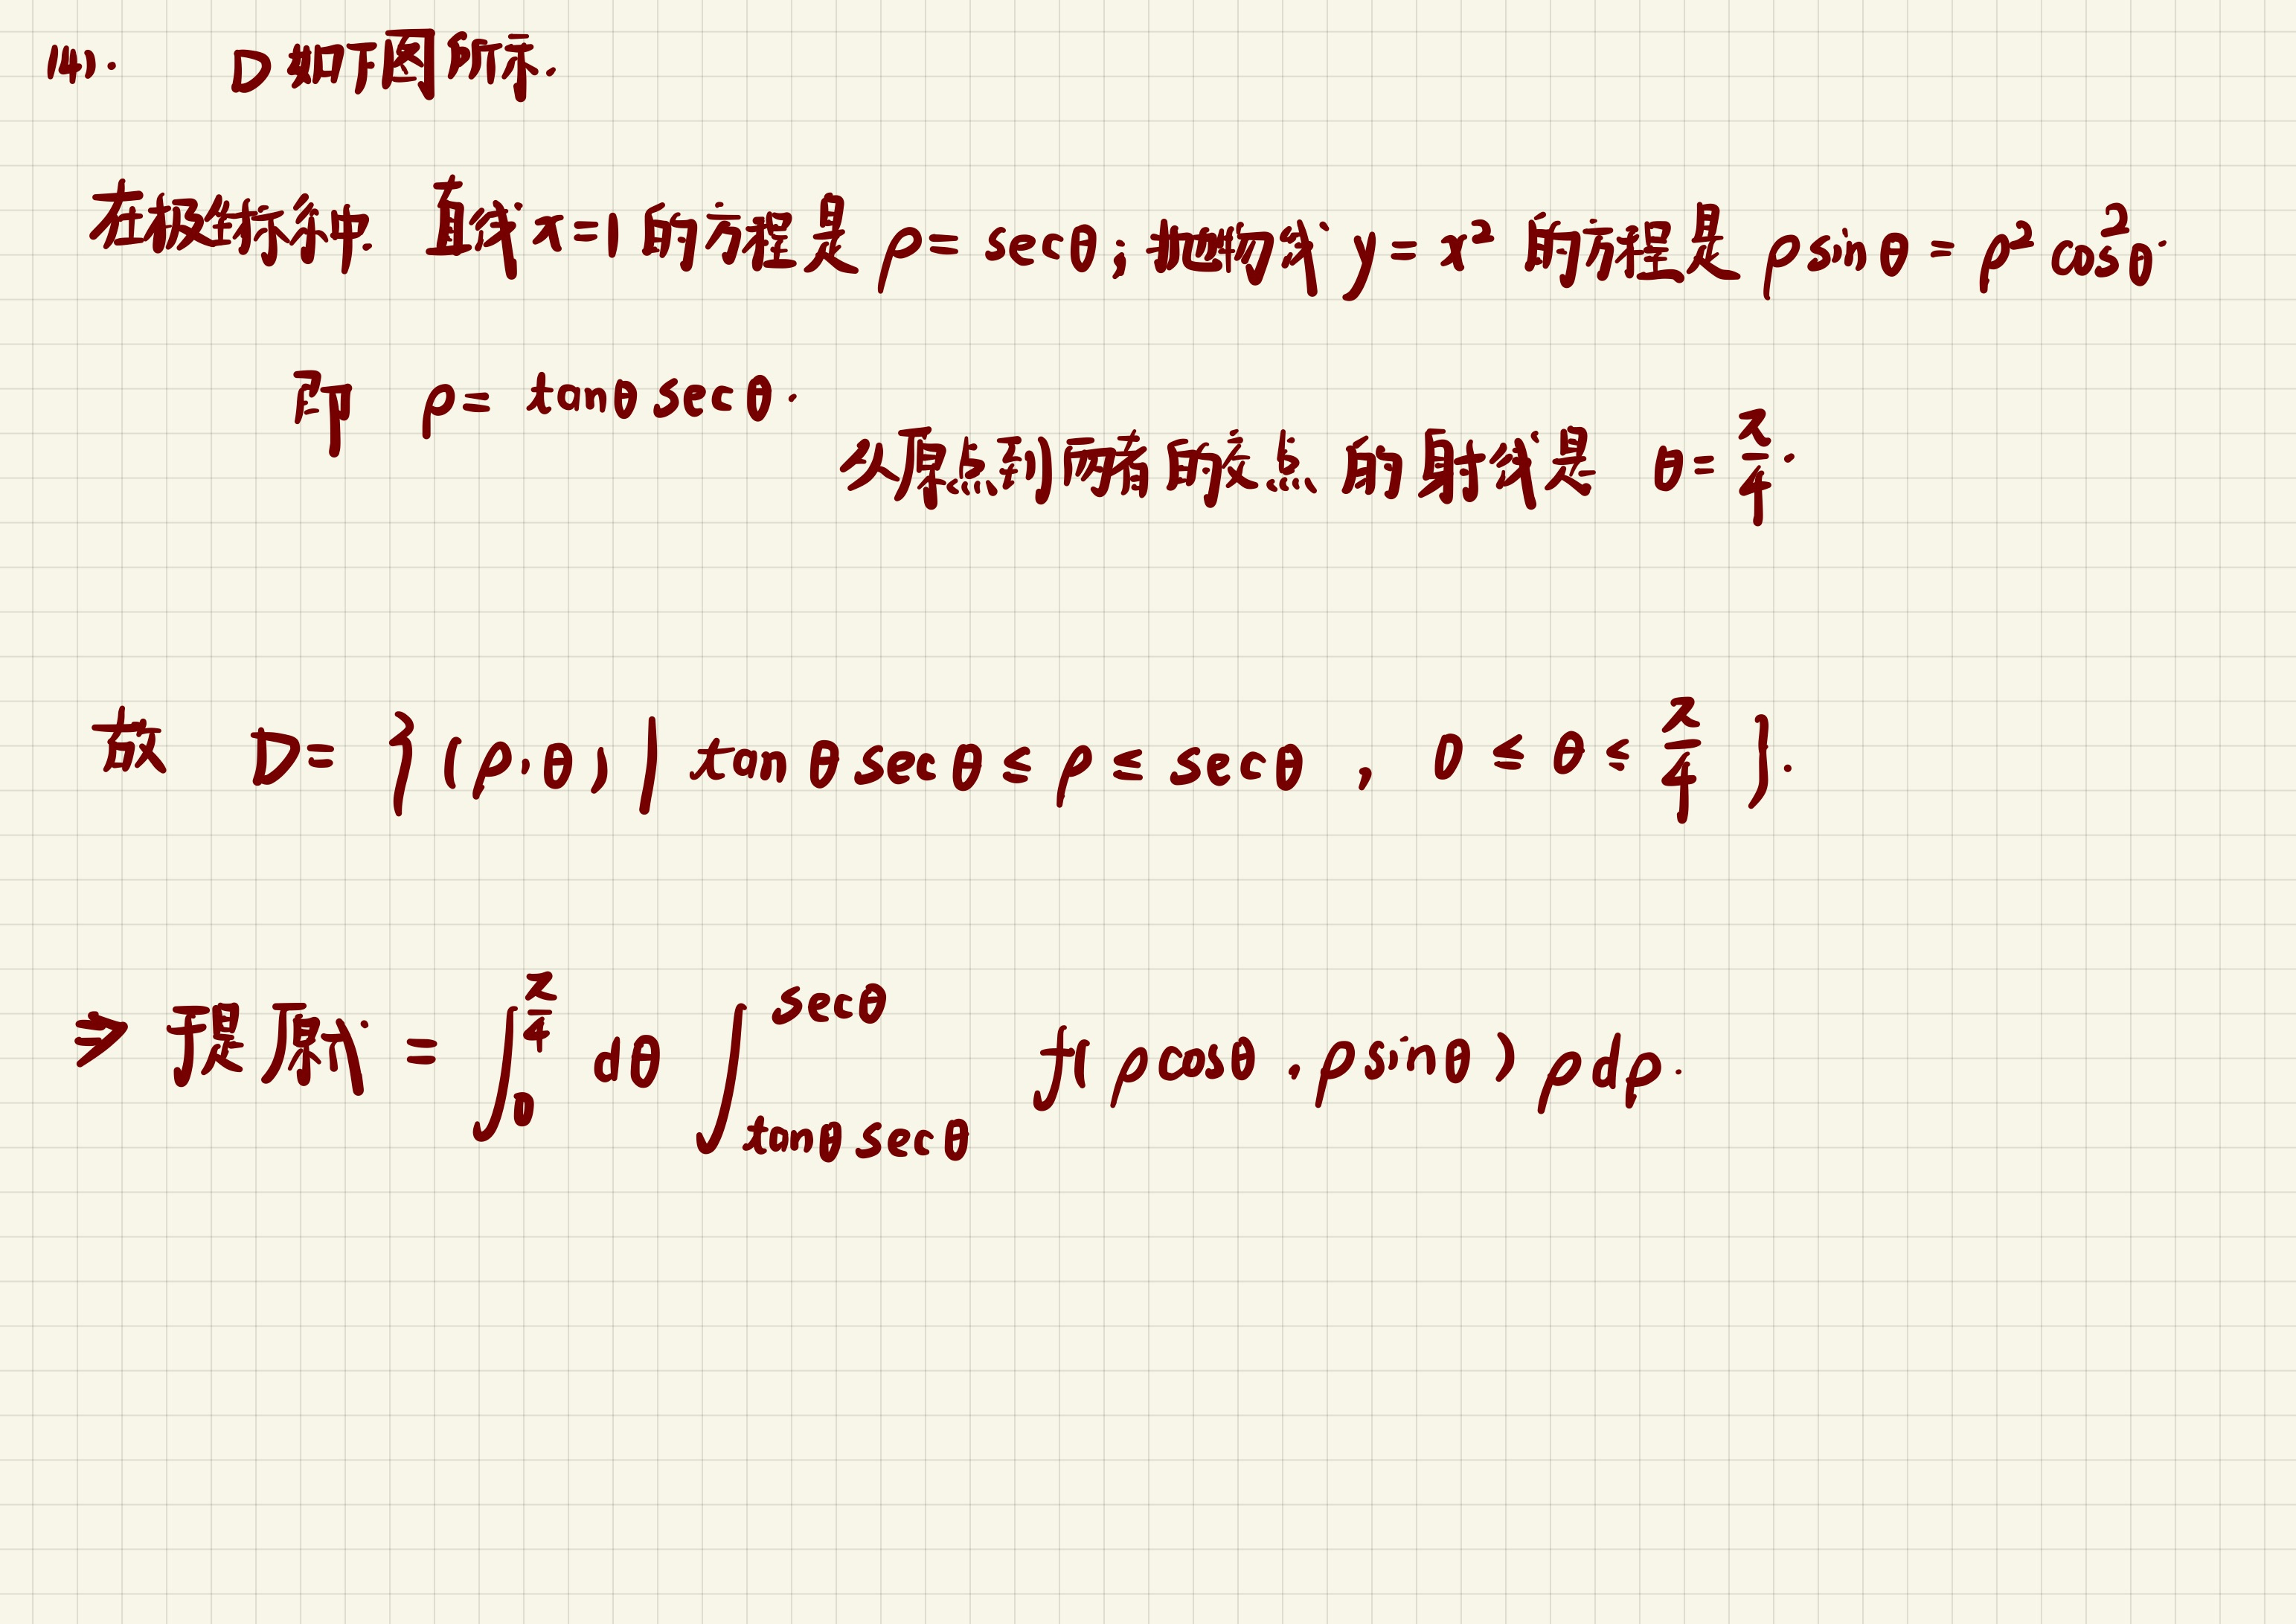 (4). D如下图所示.
在极坐标系中. 直线 x=1 的方程是 ρ= secθ; 抛物线 y= x² 的方程是 ρsinθ = ρ² cos²θ.
即 ρ= tanθ secθ.
从原点到两者的交点的射线是 θ= π/4.
故 D= {(ρ,θ) | tanθ secθ ≤ ρ ≤ secθ , 0 ≤ θ ≤ π/4 }.
⇒ 于是 原式 = ∫₀^{π/4} dθ ∫_{tanθ secθ}^{secθ} f( ρcosθ , ρsinθ ) ρdρ.